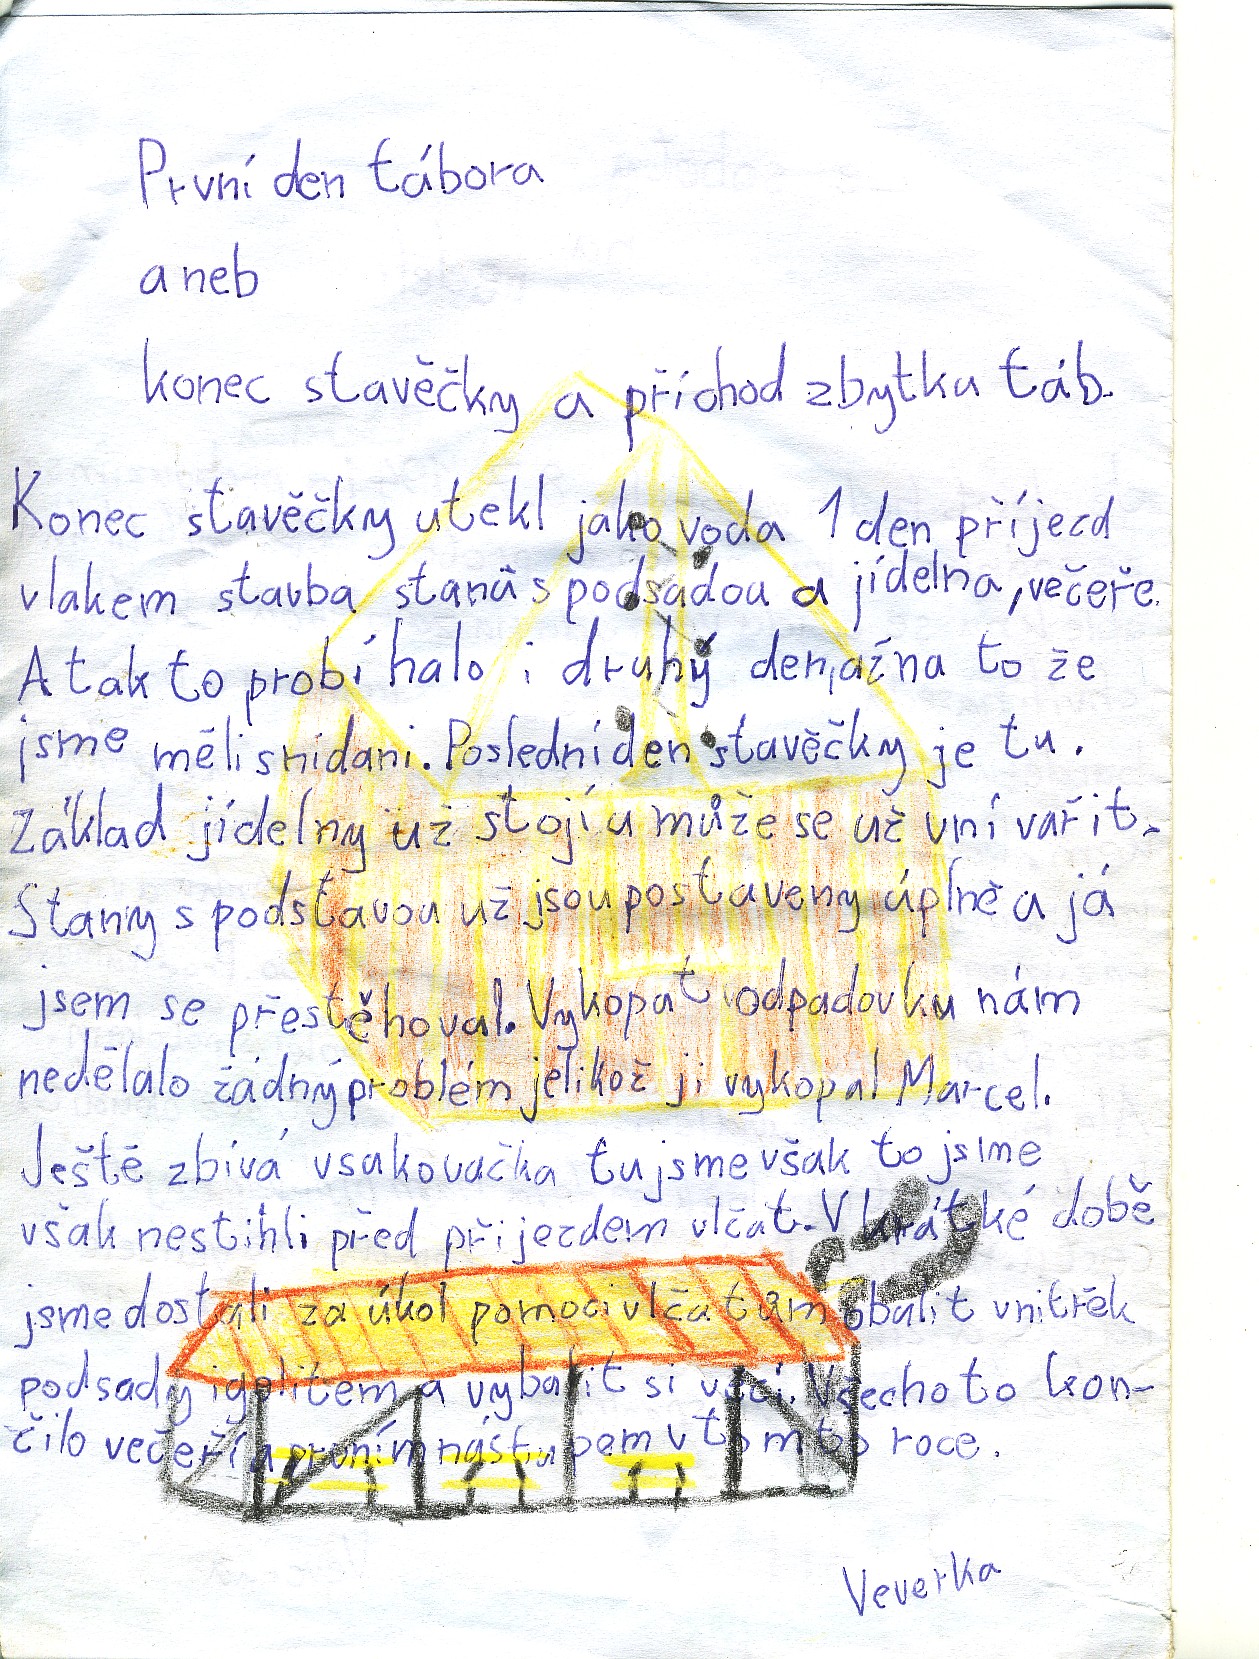 První den tábora
aneb
konec stavěčky a příchod zbytku táb.
Konec stavěčky utekl jako voda 1 den příjezd
vlakem stavba stanů s podsadou a jídelna, večeře.
A tak to probíhalo i druhý den, až na to že
jsme měli snídani. Poslední den stavěčky je tu.
Základ jídelny už stojí a může se už vní vařit.
Stany s podstavou už jsou postaveny úplně a já
jsem se přestěhoval. Vykopat odpadovku nám
nedělalo žádný problém jelikož ji vykopal Marcel.
Ještě zbívá vsakovačka tu jsme však to jsme
však nestihli před přijezdem vlčat. V krátké době
jsme dostali za úkol pomoci vlčatům obalit vnitřek
podsady igelitem a vybalit si věci. Všecho to kon-
čilo večeří a prvním nástupem v tomto roce.
Veverka